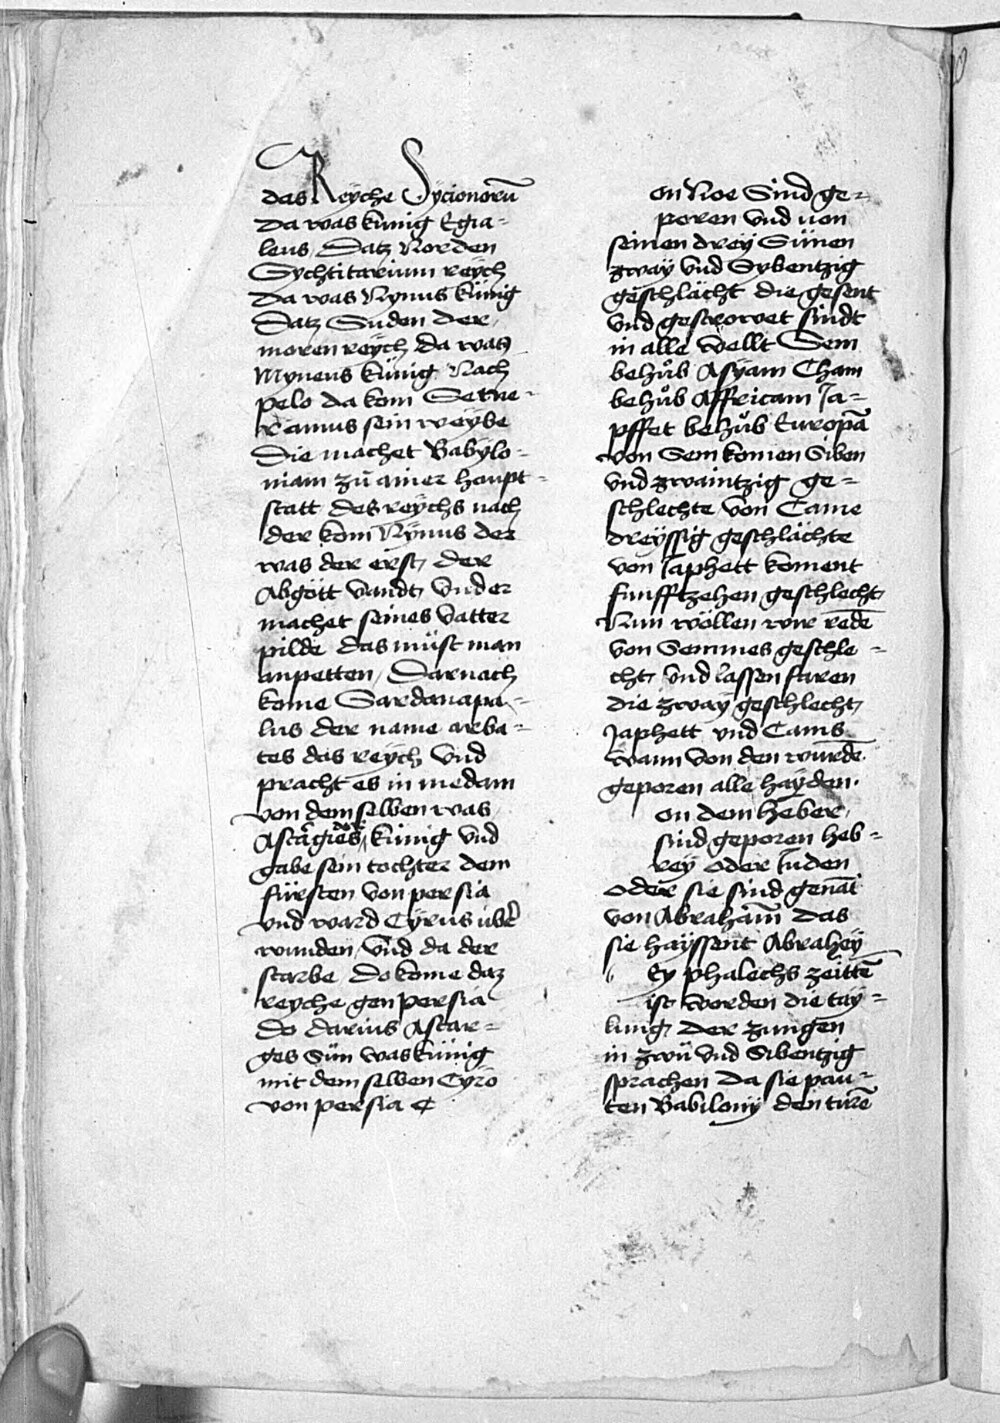 das Reÿche Sÿcionorū
da was kunig Egia-
leus, Datz Norden
Sÿchtitarium reÿch
da was Nÿnus kunig
Datz Suden der
moren reÿch da was
Mÿneus kunig Nach
pelo da kom Seme-
ramus sein weÿbe
Die machet Babÿlo-
niam zů ainer haupt-
statt des reÿchs nach
der kom Nÿnus der
was der erst, der
Abgött vandt, vnd er
machet seines vatter
pilde das müst man
anpetten, Darnach
kome Sardanapa-
lus der name arba-
tes das reÿch vnd
pracht es in medam
von dem selben was
Ascāgiēs, künig vnd
gabe sein tochter dem
fürsten von persia
vnd ward Cÿrus übeř
wunden, vnd da der
starbe do kome daz
reÿche gen persia
do darius Astar-
ges Sün was künig
mit dem selben Cÿro
von persia
on Noe Sind ge-
poren vnd uon
seinen dreÿ Sünen
zwaÿ vnd Sÿbentzig
geschlächt die gesent
vnd gestrowet sindt
in alle wellt Sem
behůb Asÿam Cham
behůb Affricam Ja-
pffet behůb Europā
von Sem komen Siben
vnd zwaintzig ge-
schlechte von Came
dreÿssig geschlächte
von Japhett koment
funfftzehen geschlecht,
Nun wöllen wir redē
von Semmes geschle-
cht, vnd lassen faren
die zwaÿ geschlecht,
Japhett vnd Cams
wann von den wurdē
geporen alle haÿden.
on dem heber,
sind geporen heb-
reÿ oder Juden
oder sie sind genāt
von Abrahām das
sie haÿssent Abraheÿ
Eÿ phalechs zeittē
ist worden die taÿ-
lung, der zungen
in zwü vnd Sibentzig
sprachen da sie pau-
ten Babilonÿ den turē